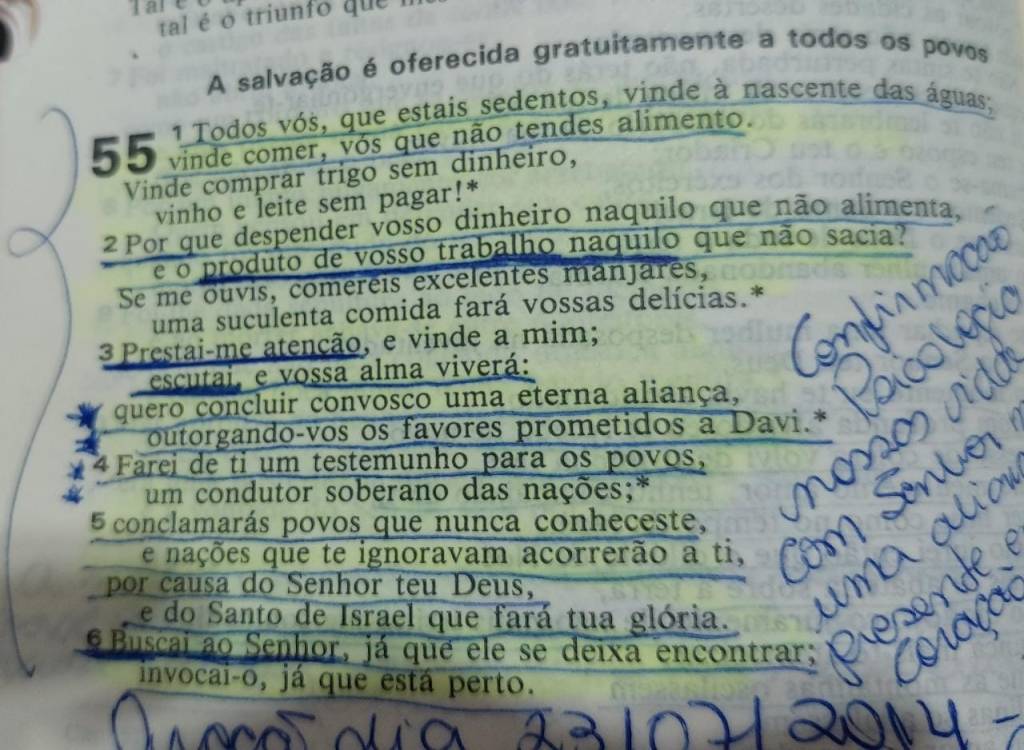 tal é o triunfo que
A salvação é oferecida gratuitamente a todos os povos
55 1 Todos vós, que estais sedentos, vinde à nascente das águas;
vinde comer, vós que não tendes alimento.
Vinde comprar trigo sem dinheiro,
vinho e leite sem pagar!*
2 Por que despender vosso dinheiro naquilo que não alimenta,
e o produto de vosso trabalho naquilo que não sacia?
Se me ouvis, comereis excelentes manjares,
uma suculenta comida fará vossas delícias.*
3 Prestai-me atenção, e vinde a mim;
escutai, e vossa alma viverá:
quero concluir convosco uma eterna aliança,
outorgando-vos os favores prometidos a Davi.*
4 Farei de ti um testemunho para os povos,
um condutor soberano das nações;*
5 conclamarás povos que nunca conheceste,
e nações que te ignoravam acorrerão a ti,
por causa do Senhor teu Deus,
e do Santo de Israel que fará tua glória.
6 Buscai ao Senhor, já que ele se deixa encontrar;
invocai-o, já que está perto.
Confirmação
Psicologia
nossos vida
com Senhor
uma
presente
coração
dia 23/07/2014 -